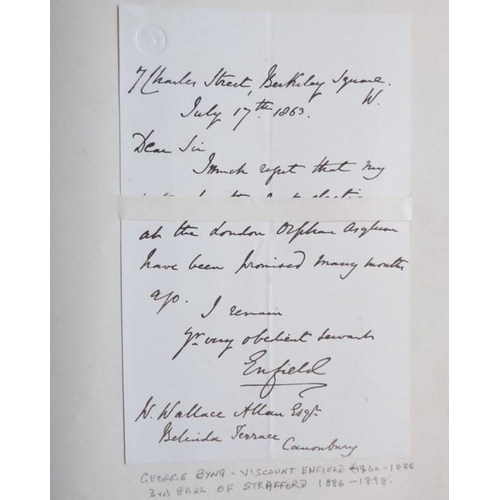 7 Charles Street, Berkeley Square.
W.
July 17th 1863.
Dear Sir
I much regret that my
at the London Orphan Asylum
have been promised many months
ago. I remain
Yr very obedient servant
Enfield
W. Wallace Allan Esqr.
Belinda Terrace
Canonbury
GEORGE BYNG - VISCOUNT ENFIELD 1860-1886
3rd EARL OF STRAFFORD 1886-1898.